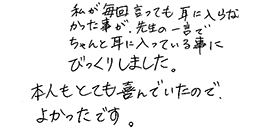 私が毎回言っても耳に入らな
かった事が、先生の一言で
ちゃんと耳に入っている事に
びっくりしました。
本人もとても喜んでいたので、
よかったです。